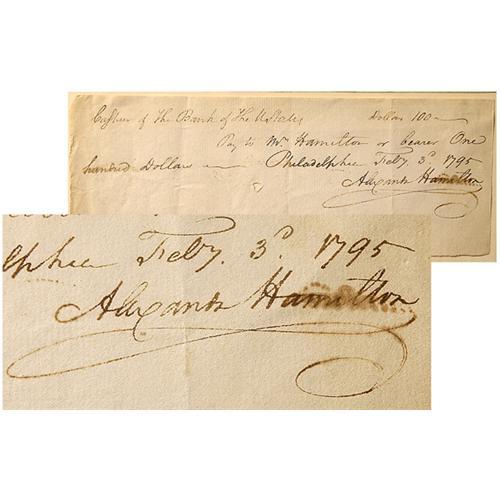 Cashier of the Bank of the UStates Dollars 100
Pay to Mr. Hamilton or bearer One
hundred Dollars Philadelphia Feby. 3d. 1795
Alexander Hamilton
elphia Feby. 3d. 1795
Alexander Hamilton